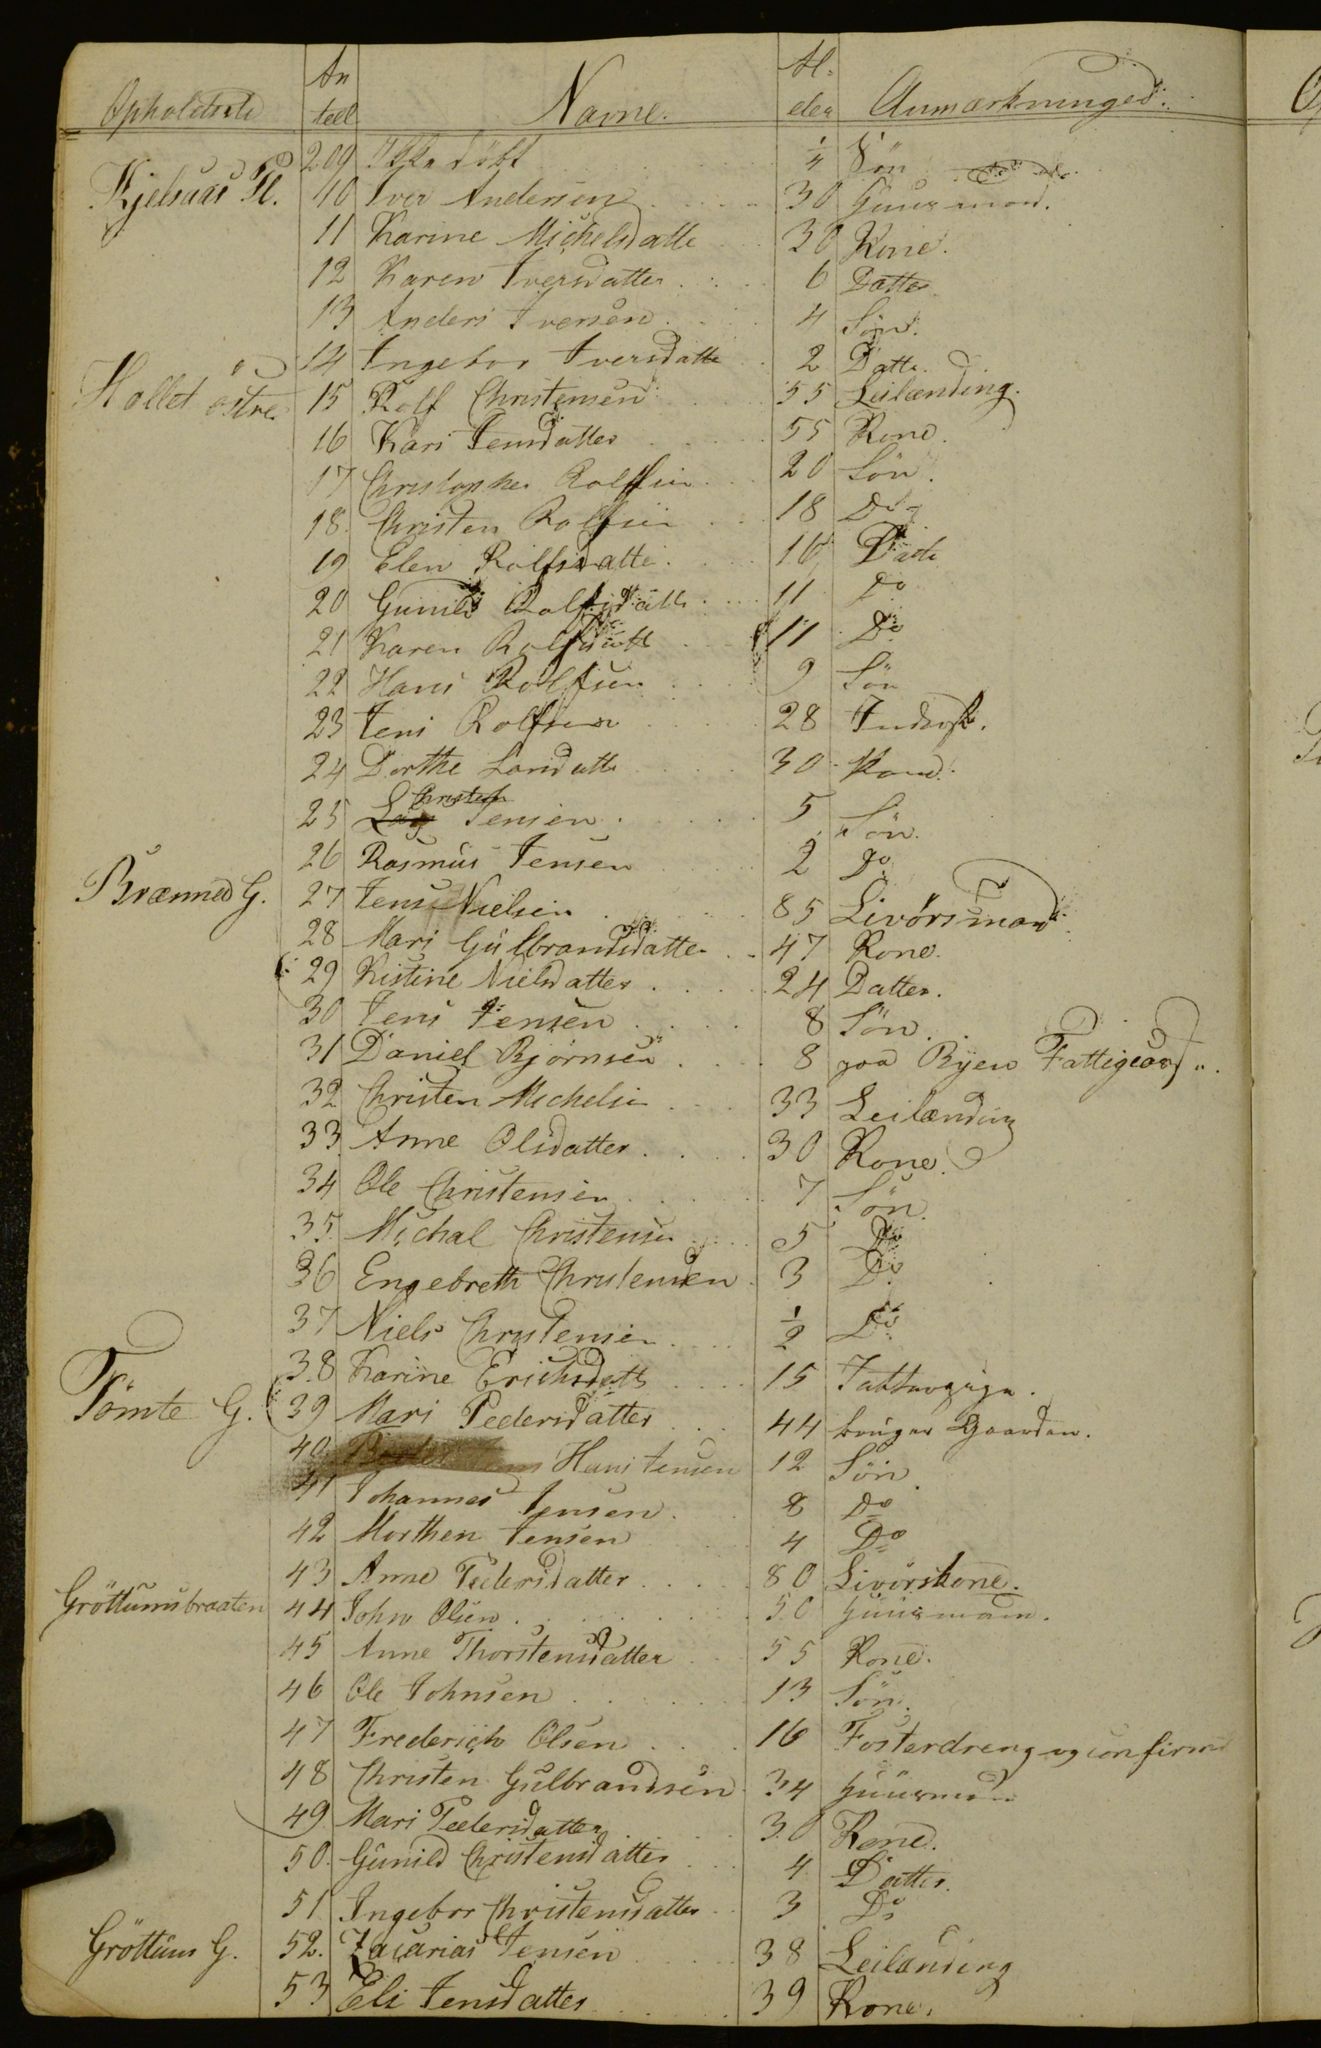 Opholdsste An teel Navne. Al- der Anmærkninger.
209 Ikke döbt 1/4 Sön
Kjelsaas Pl. 10 Iver Andersen 30 Huusmand.
11 Karine Michelsdatte 30 Kone.
12 Karen Iversdatter 6 Datter
13 Anders Iversen 4 Sön.
14 Ingebor Iversdatte 2 Datte.
Hollet östre 15 Rolf Christensen 55 Leilænding.
16 Kari Jensdatter 55 Kone.
17 Christopher Rolfsen 20 Sön.
18. Christen Rolfsen 18 Do
19 Elen Rolfsdatte 16 Datte
20 Gunild Rolfsdatte 11 Do
21 Karen Rolfsdatte 11 Do
22 Hans Rolfsen 9 Sön
23 Jens Rolfsen 28 Inderst.
24 Dorthe Larsdatte 30 Kone.
25 Christen Jensen 5 Sön.
26 Rasmus Jensen 2 Do
Brænned G. 27 Jens Nielsen 85 Livörsmand
28 Mari Gulbrandsdatter 47 Kone.
29 Kistine Nielsdatter 24 Datter.
30 Jens Jensen 8 Sön.
31 Daniel Bjørnsen 8 paa Byen Fattigvæs..
32 Christen Michelsen 33 Leilænding
33. Anne Olsdatter 30 Kone.
34 Ole Christensen 7 Sön.
35. Michal Christensen 5 Do
36 Engebreth Christensen 3 Do
37 Niels Christensen 1/2 Do
38 Karine Erichsdatte 15
Tömte G. 39 Mari Pedersdatter 44 bruger Gaarden.
40 Hans Jensen 12 Sön
41 Johannes Jensen 8 Do
42 Morthen Jensen 4 Do
43 Anne Pedersdatter 80 Livörskone.
Gröttumsbraaten 44 John Olsen 50 Huusmand.
45 Anne Thorstensdatter 55 Kone.
46 Ole Johnsen 13 Sön.
47 Frederich Olsen 16 Fosterdreng og confirmd
48 Christen Gulbrandsen 34 Huusmand
49 Mari Pedersdatter 30 Kone.
50. Gunild Christensdatter 4 Datter.
51 Ingebor Christensdatter 3 Do
Gröttum G. 52. Zacarias Jensen 38 Leilænding
53 Eli Jensdatter 39 Kone.